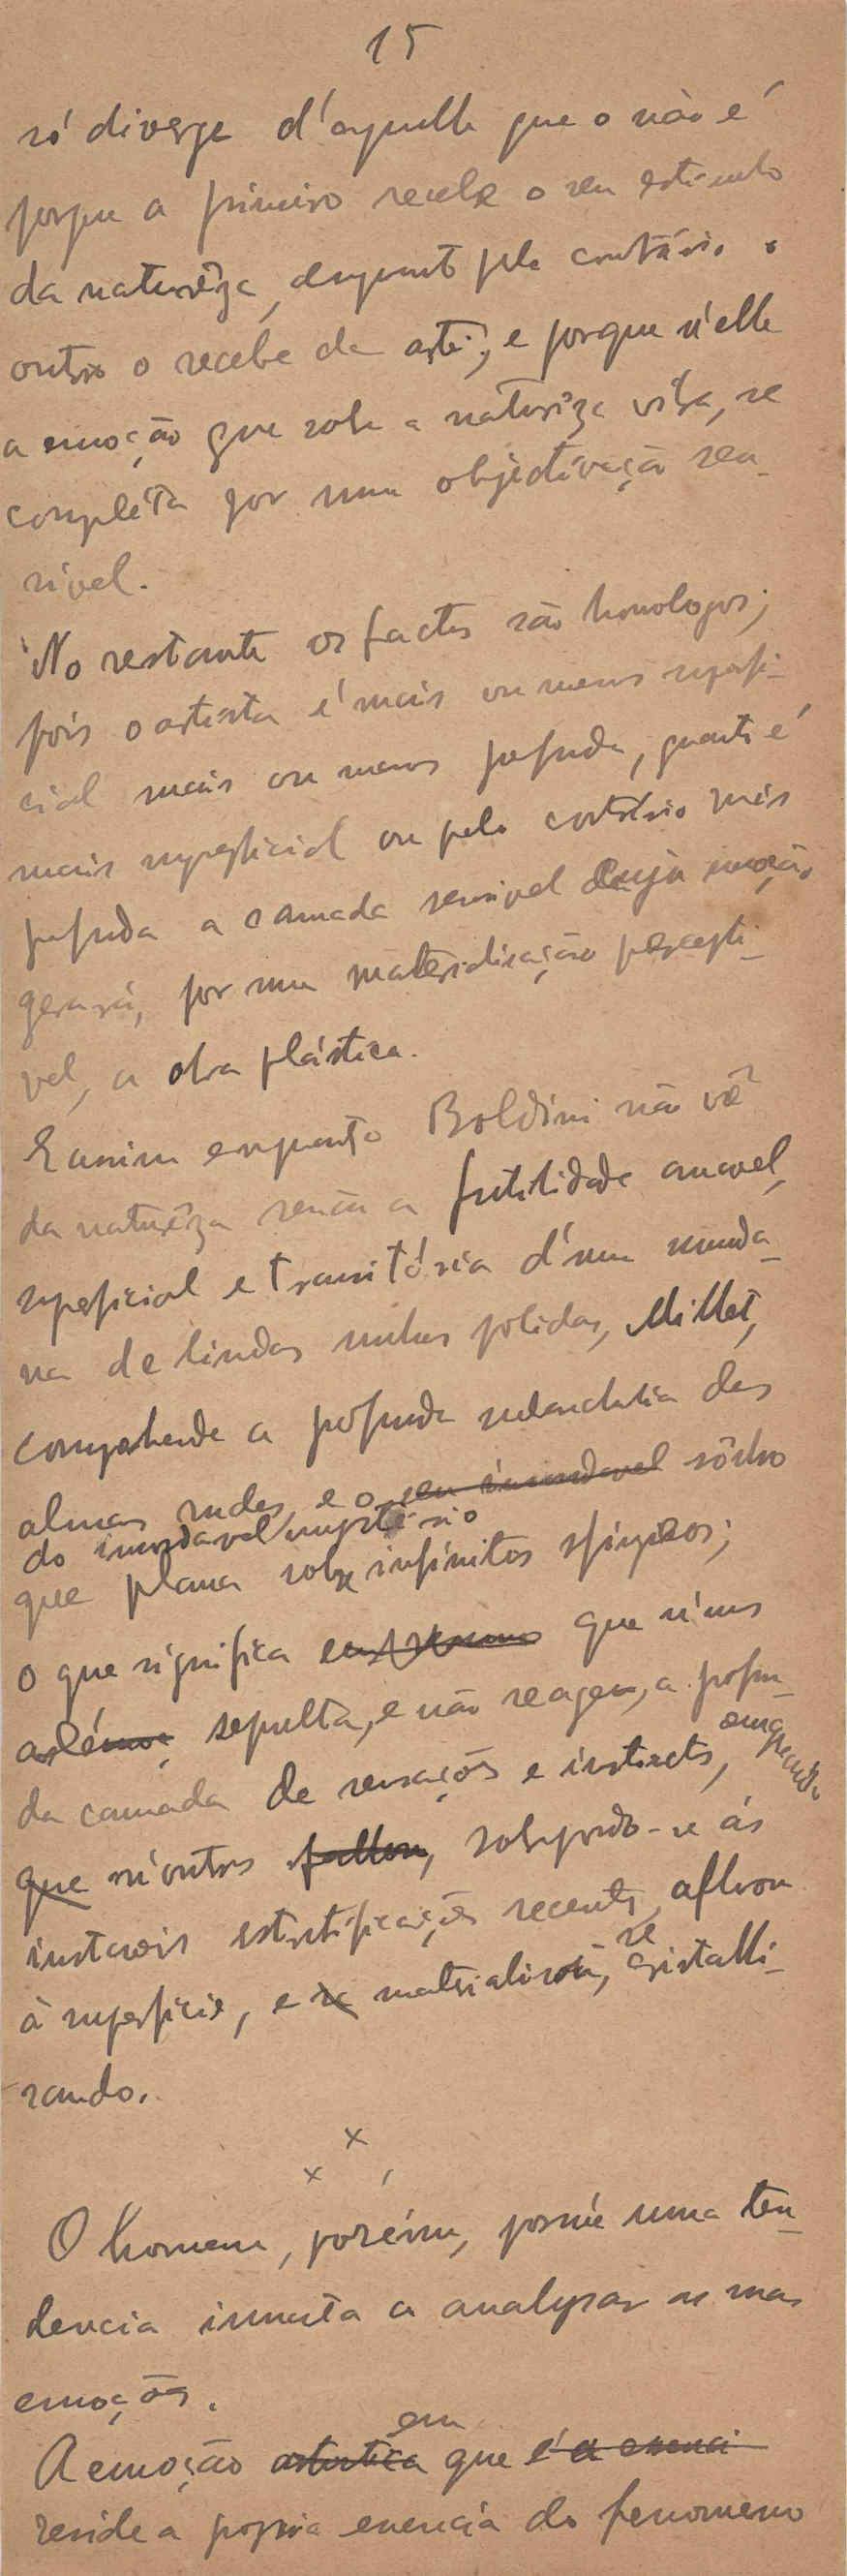 15
só diverge d'aquelle que o não é
porque o primeiro recebe o seu estimulo
da naturêza, emquanto pelo contrário o
outro o recebe da arte; e porque n'elle
a emoção que sobe a naturêza viva, se
complèta por uma objectivação sen-
sivel.
No restante os factos são homologos;
pois o artista é mais ou menos superfi-
cial mais ou menos profundo, quanto é
mais superficial ou pelo contrário mais
profunda a camada sensivel cuja emoção
gerará, por uma materialisação percepti-
vel, a obra plástica.
E assim emquanto Boldini não vê
da naturêza senão a futilidade amavel,
superficial e transitória d'um munda-
na de lindas unhas polidas, Millet,
comprehende a profunda melancholia das
almas rudes, e o seu insondavel sônho
do insondavel mystério
que plana sobre infinitos sfingicos;
o que significa que n'uns
sepulta, e não reagem, a profun-
da camada de sensações e instinctos, emquanto
que n'outros fallam, sobrepondo-se ás
instaveis estratificações recentes, afloram
à superficie, e se materialisam, se cristalli-
sando.
x
x ,
O homem, porém, possúe uma ten-
dencia innata a analysar as suas
emoções.
em
A emoção artistica que é a essenci
reside a propria essencia do fenomeno